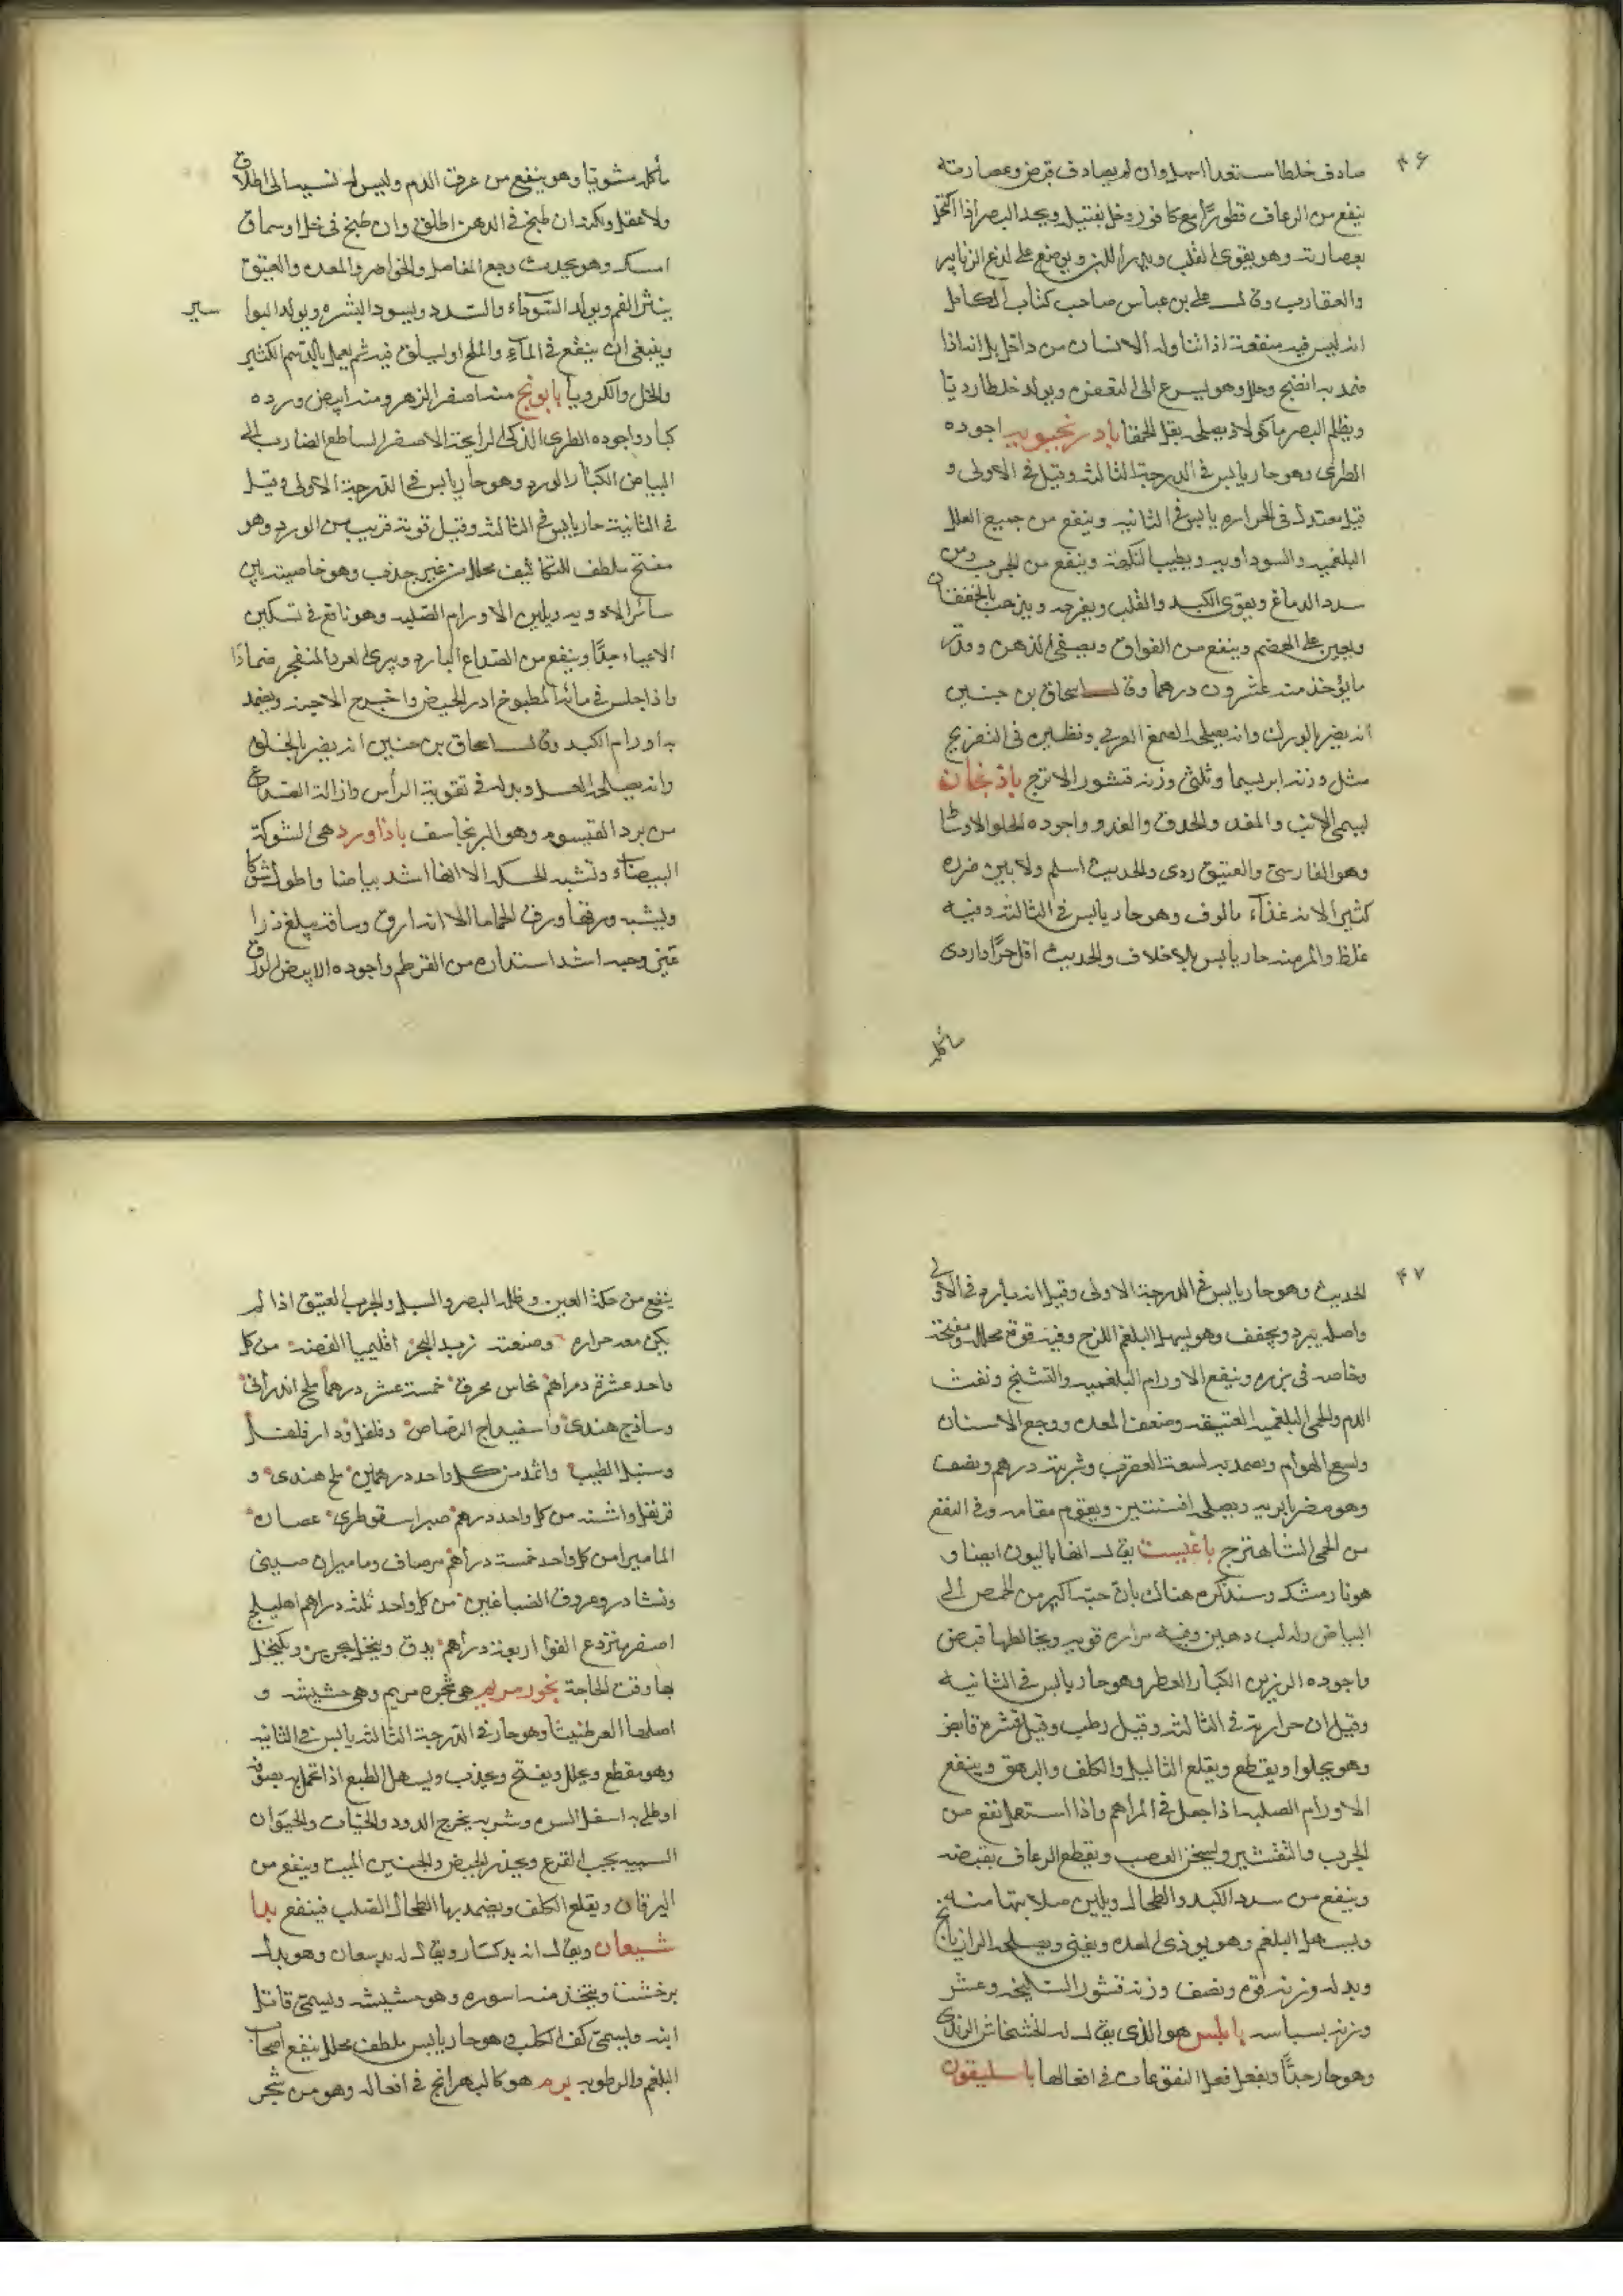 ۴۶
صادف خلطا مستعدا اسهل وان لم يصادف قبض وعصارته
ينفع من الرعاف قطورًا مع كافور وخل بفتيل ويحد البصر اذا اكتحل
بعصارته وهو يقوى القلب ويدر اللبن ويوضع على لدغ الزنابير
والعقارب وقال على بن عباس صاحب كتاب الكامل
انه ليس فيه منفعة اذا تناوله الانسان من داخل بل انه اذا
ضمد به انضج وحلل وهو يسرع الى التعفن ويولد خلطا رديا
ويظلم البصر ماكولا ويصلحه بقلة الحمقا بادرنجبويه اجوده
الطرى وهو حار يابس فى الدرجة الثالثه وقيل فى الاولى و
قيل معتدل فى الحراره يابس فى الثانيه وينفع من جميع العلل
البلغميه والسوداويه ويطيب النكهة وينفع من الجرب ومن
سدد الدماغ ويقوى الكبد والقلب ويفرحه ويذهب بالخفقان
ويعين على الهضم وينفع من الفواق ويصفى الذهن وقدر
ما يؤخذ منه عشرون درهما وقال اسحاق بن حنين
انه يضر بالورك وانه يصلحه الصمغ العربى ونظيره فى التفريح
مثل وزنه ابريسما وثلثى وزنه قشور الاترج باذنجان
ليسمى الانب والمغد والحدق والغدو واجوده الحلو الاوساط
وهو الفارسى والعتيق ردى والحديث اسلم ولا يبين ضرره
كثيرا لانه غذآء مالوف وهو حار يابس فى الثالثه وفيه
غلظ والمر منه حار يابس بلا خلاف والحديث اقل حرًا واردى
مأكله
مأكله مشويًا وهو ينفع من عرق الدم وليس له نسبه الى اطلاق
ولا عقل ولكنه ان طبخ فى الدهن اطلق وان طبخ فى خل او سماق
امسك وهو يحدث وجع المفاصل والخواصر والمعده والعتيق
ينثر الفم ويولد السودآء والسدد ويسود البشره ويولد البوا
سير
وينبغى ان ينقع فى المآء والملح او يسلق فيه ثم يعمل بالدسم الكثير
والخل والكرويا بابونج منه اصفر الزهر ومنه ابيض ورده
كبار واجوده الطرى الذكى الرايحة الاصفر الساطع الضارب الى
البياض الكبار الورد وهو حار يابس فى الدرجة الاولى وقيل
فى الثانية حار يابس فى الثالثه وقيل قوته قريب من الورد وهو
مفتح ملطف للتكاثيف محلل من غير جذب وهو خاصيته بين
سائر الادويه ويلين الاورام الصلبه وهو نافع فى تسكين
الاعياء جدًا وينفع من الصداع البارد ويبرى الغرب المنفجر ضمادًا
واذا جلس فى مائه المطبوخ ادر الحيض واخرج الاجنه ويضمد
به اورام الكبد وقال اسحاق بن حنين انه يضر بالحلق
وانه يصلحه العسل وبدله فى تقوية الرأس وازالة الصداع
من برد القيسوم وهو البرنجاسف باذاورد هى الشوكة
البيضآء وتشبه الحسك الا انها اشد بياضا واطول شوكا
ويشبه ورقها ورق الحماما الا انه ارق وساقه يبلغ ذرا
عين وحبه اشد استداره من القرطم واجوده الابيض الورق
۴۷
الحديث وهو حار يابس فى الدرجة الاولى وقيل انه بارد فى الاولى
واصله يبرد ويجفف وهو يسهل البلغم اللزج وفيه قوة محلله ومفتحة
وخاصه فى بزره وينفع الاورام البلغميه والتشنج ونفث
الدم والحمى البلغميه العتيقه وضعف المعده ووجع الاسنان
ولسع الهوام ويضمد به لسعة العقرب وشربته درهم ونصف
وهو مضر بالريه ويصلحه افسنتين ويقوم مقامه وفى النفع
من الحمى الشاهترج باغيست يقال انها باليون ايضا و
هو نارمشك وسنذكره هناك بان حبه اكبر من الحمص الى
البياض وله لب دهين وفيه مراره قويه ويخالطها قبض
واجوده الرزين الكبار العطر وهو حار يابس فى الثانيه
وقيل ان حرارته فى الثالثه وقيل رطب وقيل قشره قابض
وهو يجلوا ويقطع ويقلع الثاليل والكلف والبهق وينفع
الاورام الصلبه اذا جعل فى المراهم واذا استعمل نفع من
الجرب والتقشير وليسخن العصب ويقطع الرعاف بقبضه
وينفع من سدد الكبد والطحال ويلين صلابتها منه
ويسهل البلغم وهو يوذى المعده ويغثى ويصلحه الرازيانج
وبدله وزنه فوه ونصف وزنه قشور السليخه وعشر
وزنه بسباسه بابلس هو الذى يقال له الخشخاش الزبدى
وهو حار جدًا ويفعل فعل اليتوعات فى افعالها باسليقون
ينفع من حكة العين وظلمة البصر والسبل والجرب العتيق اذا لم
يكن معه حراره وصنعته زبد البحر اقليميا الفضه من كل
واحد عشرة دراهم نحاس محرق خمسة عشر درهما ملح اندرانى
وساذج هندى واسفيداج الرصاص وفلفل ودارفلفل
وسنبل الطيب واثمد من كل واحد درهمين ملح هندى و
قرنفل واشنه من كل واحد درهم صبر اسقوطرى عصارة
الماميرا من كل واحد خمسة دراهم مرصاف وماميران صينى
ونشادر وعروق الصباغين من كل واحد ثلثه دراهم اهليلج
اصفر منزوع النوا اربعة دراهم يدق وينخل بحريره ويكتحل
بها وقت الحاجة بخور مريم هى شجره مريم وهى حشيشه و
اصلها العرطنيثا وهو حار فى الدرجة الثالثه يابس فى الثانيه
وهو مقطع ويحلل ويفتح ويجذب ويسهل الطبع اذا تحمل به بصوفه
او طلى به اسفل السره وشربه يخرج الدود والحيات والحيوان
الشبيه بحب القرع ويحدر الحيض والجنين الميت وينفع من
اليرقان ويقلع الكلف ويضمد بها الطحال الصلب فينتفع بدا
شيعان ويقال انه بدكسار ويقال له بدسعان وهو بدل
برخشت ويتخذ منه اسوره وهو حشيشه ويسمى قاتل
ابيه ويسمى كف الكلب وهو حار يابس ملطف محلل ينفع اصحاب
البلغم والرطوبه برم هو كالبهرامج فى افعاله وهو من شجر